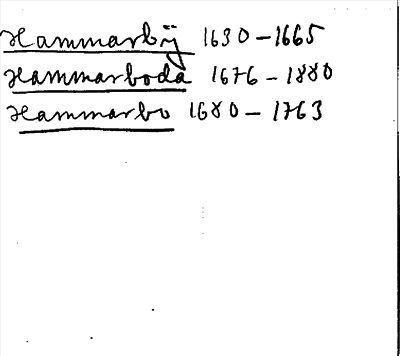 Hammarbÿ 1630-1665
Hammarboda 1676-1880
Hammarbo 1680-1763